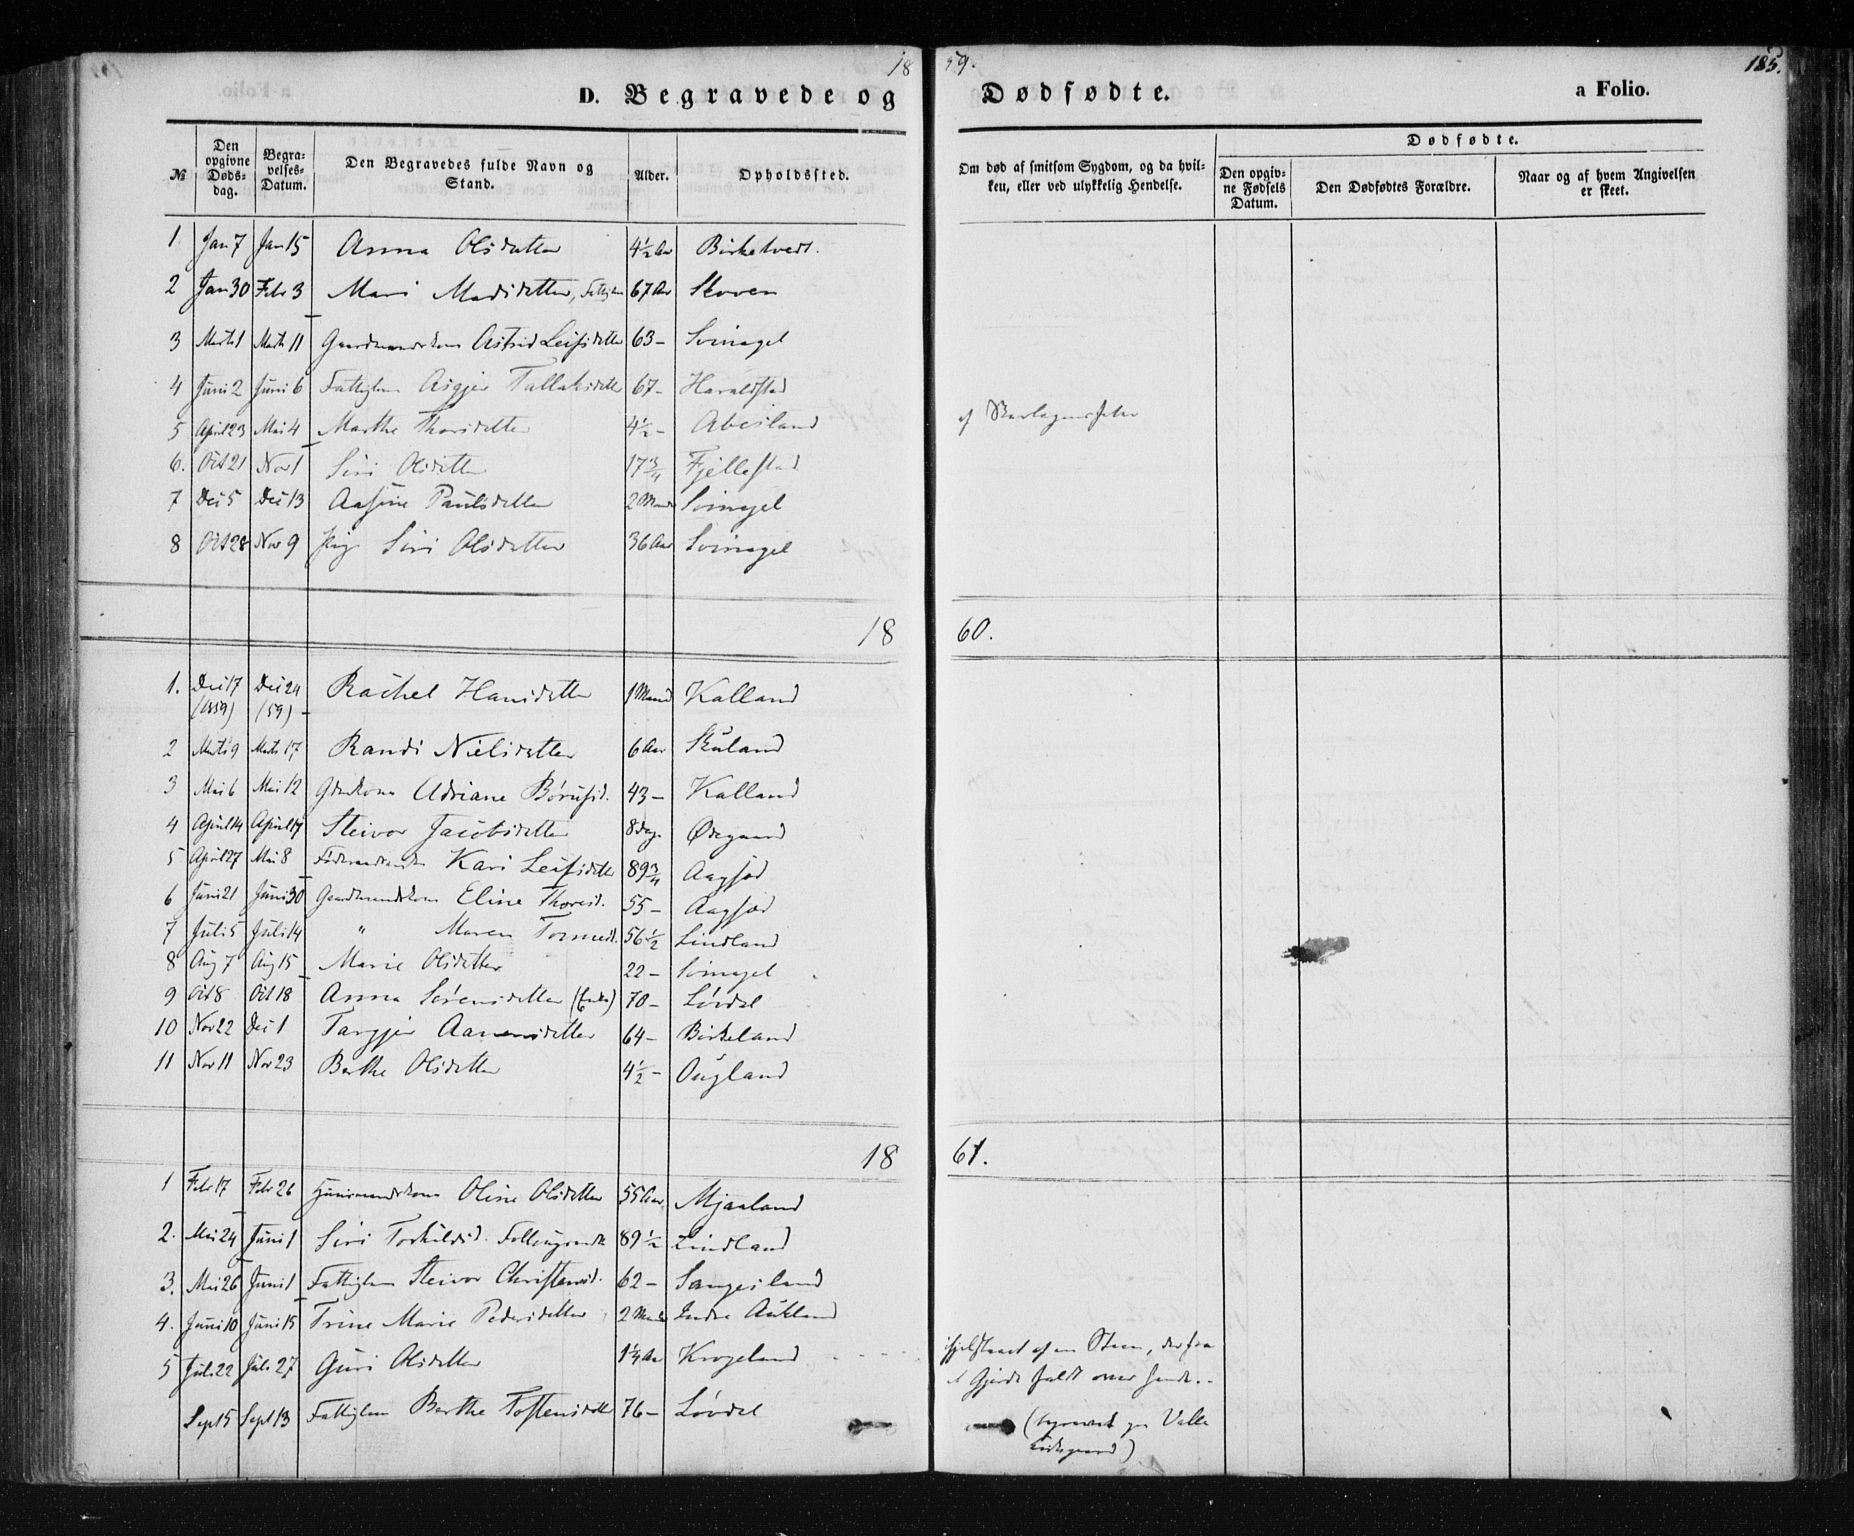 18 59. 185.
D. Begravede og Dødfødte. a Folio.
№ Den opgivne Døds-dag. Begra-velses-Datum. Den Begravedes fulde Navn og Stand. Alder. Opholdssted. Om død af smitsom Sygdom, og da hvil-ken, eller ved ulykkelig Hendelse. Dødfødte. Den opgiv-ne Fødsels Datum. Den Dødfødtes Forældre. Naar og af hvem Angivelsen er skeet.
1 Jan 7 Jan 15 Anna Olsdatter 4½ Aar Birketvedt.
2 Jan 30 Febr 3 Mari Madsdatter, Fattiglem 67 Aar Skoven
3 Marts 1 Marts 11 Gaardmandskone Astrid Leifsdatter 63 – Svinagel
4 Juni 2 Juni 6 Fattiglem Asgjer Tallaksdatter 67 – Haraldstad
5 April 23 Mai 4 Marthe Thorsdatter 4½ – Abesland af Skarlagensfeber
6. Oct 21 Nov 1 Siri Olsdatter 17¾ Fjellestad
7 Dec 5 Dec 13 Aasine Paulsdatter 2 Maand Svinagel
8 Oct 28 Nov 9 Pig Siri Olsdatter 36 Aar Svinagel
18 60.
1. Dec 17 (1859) Dec 24 (59) Rachel Hansdatter 1 Maaned Kalland
2 Marts 9 Marts 17 Randi Nielsdatter 6 Aar Skuland
3 Mai 6 Mai 12 Gmdkone Adriane Børufsd. 43 – Kalland
4 April 14 April 17 Steivor Jacobsdatter 8 Dag Ødegaard
5 April 27 Mai 8 Kari Leifsdatter 89¾ Aagsød
6 Juni 21 Juni 30 Gaardmandskone Eline Thoresd. 55 – Aagsød
7 Juli 5 Juli 14 " Maren Tormodsd. 56½ Lindland
8 Aug 7 Aug 15 Marie Olsdatter 22 – Svinagel
9 Oct 8 Oct 18 Anna Sørensdatter (Enke) 70 – Løvdal
10 Nov 22 Dec 1 Targjer Aanensdatter 64 – Birkeland
11 Nov 11 Nov 23 Berthe Olsdatter 4½ – Ougland
18 61.
1 Febr 17 Febr 26 Huusmandskone Oline Olsdatter 55 Aar Mjaaland
2. Mai 24 Juni 1 Siri Torkildsd. 89½ Lindland
3. Mai 26 Juni 1 Fattiglem Steivor Christensd. 62 – Sangesland
4. Juni 10 Juni 15 Trine Marie Pedersdatter 2 Maaneder Indre Aukland
5 Juli 22 Juli 27 Guri Olsdatter 1¼ Aar Krogeland ihjelslaaet af en Steen, der fra
et Gjerde faldt over hende. –
Sept 5 Sept 13 Fattiglem Berthe Tostensdatter 76 – Løvdal (begravet paa Valle
Kirkegaard)